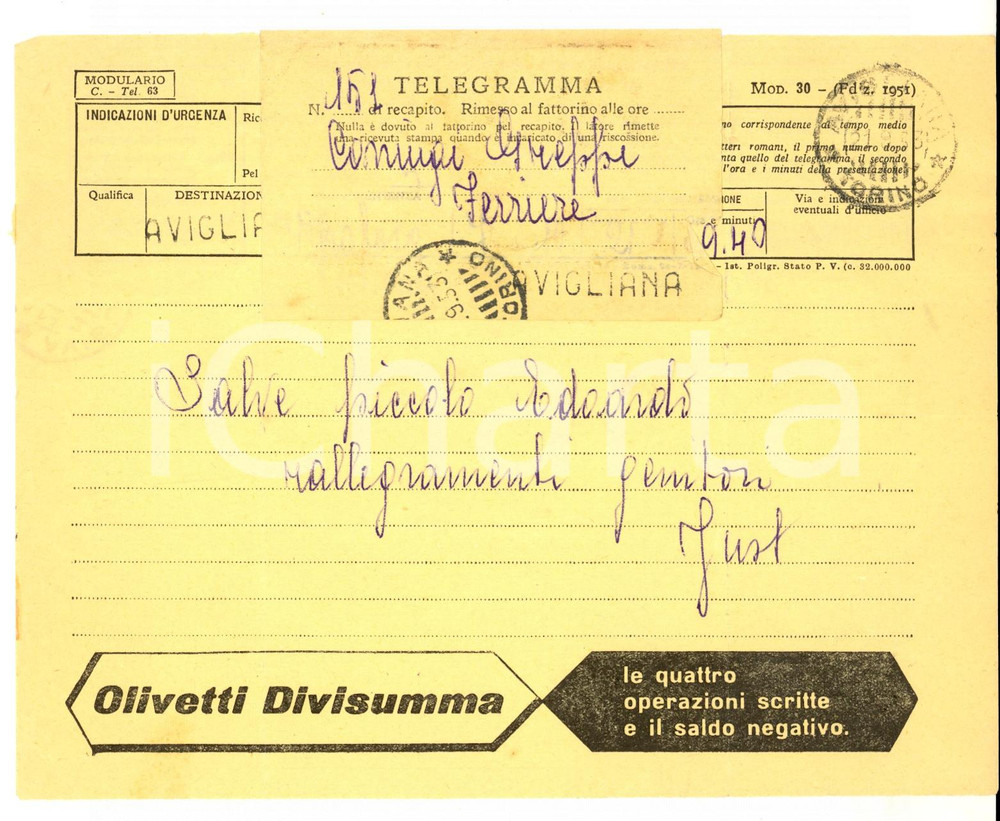 MODULARIO
C. - Tel. 63
TELEGRAMMA
MOD. 30 - (Fd z. 1951)
INDICAZIONI D'URGENZA
Ric
N. 151 di recapito. Rimesso al fattorino alle ore
Nulla è dovuto al fattorino pel recapito. Il latore rimette
una ricevuta stampa quando è incaricato di una riscossione.
no corrispondente al tempo medio
tteri romani, il primo numero dopo
nta quello del telegramma, il secondo
l'ora e i minuti della presentazione.
Pel
Coniugi Streppi
Ferriere
Qualifica
DESTINAZION
IONE
e minuti
Via e indicazioni
eventuali d'ufficio
AVIGLIA
9.40
- Ist. Poligr. Stato P. V. (c. 32.000.000
AVIGLIANA
TORINO
TORINO
iCharta
Salve piccolo Edoardo
rallegramenti genitori
Just
Olivetti Divisumma
le quattro
operazioni scritte
e il saldo negativo.